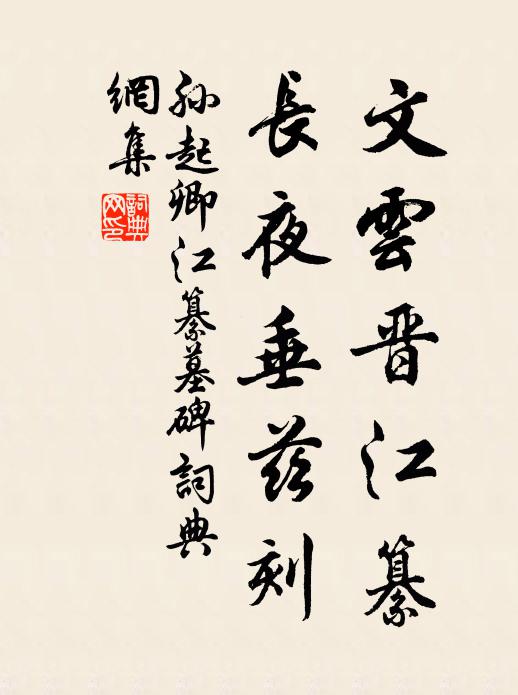 文雲晋江纂
長夜垂茲刻
孙起卿江纂墓碑詞典
網集
詞典
网印